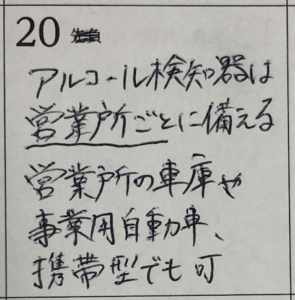 20
アルコール検知器は
営業所ごとに備える
営業所の車庫や
事業用自動車、
携帯型でも可